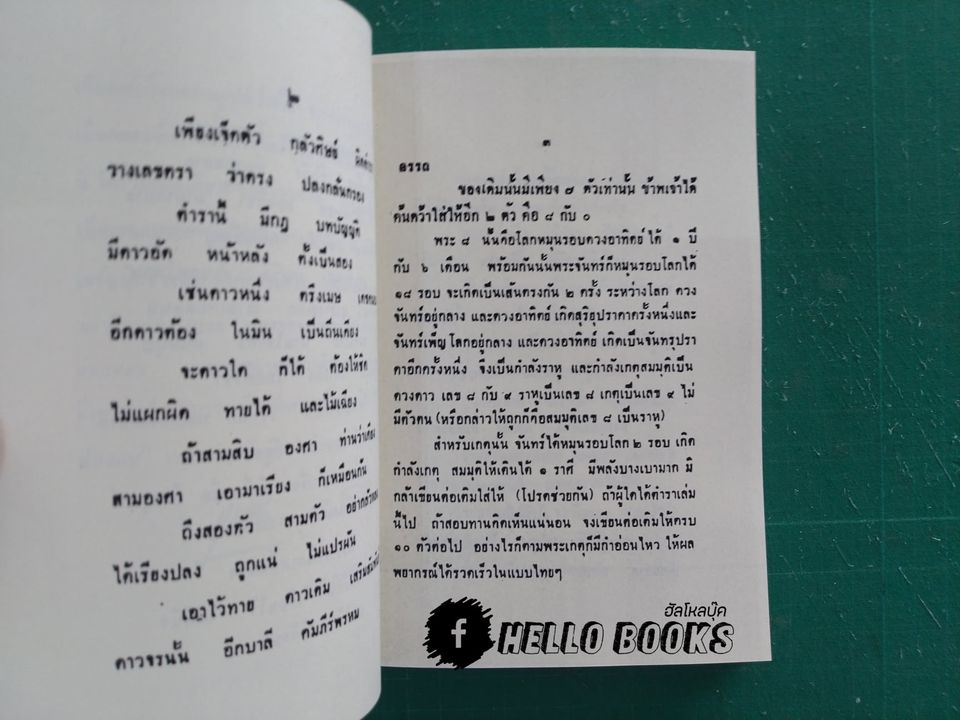 ๒
เพียงเจ็ดตัว กลัวศิษย์
วางเลขตรา ว่าตรง
ตำรานี้ มีกฎ บทบัญญัติ
มีดาวอัด หน้าหลัง ตั้งเป็นสอง
เช่นดาวหนึ่ง ตรึงเมษ
อีกดาวต้อง ในมิน เป็นถิ่นเคียง
จะดาวใด ก็ได้ ต้องให้ชิด
ไม่แผกผิด ทายได้ และไม้เฉียง
ถ้าสามสิบ องศา ท่านว่าเคียง
สามองศา เอามาเรียง ก็เหมือนกัน
ถึงสองตัว สามตัว
ได้เรียงปลง ถูกแน่ ไม่แปรผัน
เอาไว้ทาย ดาวเดิม
ดาวจรนั้น อีกบาลี คัมภีร์พรหม
๓
อรรถ
ของเดิมนั้นมีเพียง ๗ ตัวเท่านั้น ข้าพเจ้าได้
ค้นคว้าใส่ให้อีก ๒ ตัว คือ ๘ กับ ๐
พระ ๘ นั้นคือโลกหมุนรอบดวงอาทิตย์ได้ ๑ ปี
กับ ๖ เดือน พร้อมกันนั้นพระจันทร์ก็หมุนรอบโลกได้
๑๘ รอบ จะเกิดเป็นเส้นตรงกัน ๒ ครั้ง ระหว่างโลก ดวง
จันทร์อยู่กลาง และดวงอาทิตย์ เกิดสุริยุปราคาครั้งหนึ่งและ
จันทร์เพ็ญ โลกอยู่กลาง และดวงอาทิตย์ เกิดเป็นจันทรุปรา
คาอีกครั้งหนึ่ง จึงเป็นกำลังราหู และกำลังเกตุสมมุติเป็น
ดวงดาว เลข ๘ กับ ๙ ราหูเป็นเลข ๘ เกตุเป็นเลข ๙ ไม่
มีตัวตน (หรือกล่าวให้ถูกก็คือสมมุติเลข ๘ เป็นราหู)
สำหรับเกตุนั้น จันทร์ได้หมุนรอบโลก ๒ รอบ เกิด
กำลังเกตุ สมมุติให้เดินได้ ๑ ราศี มีพลังบางเบามาก มิ
กล้าเขียนต่อเติมใส่ให้ (โปรดช่วยกัน) ถ้าผู้ใดได้ตำราเล่ม
นี้ไป ถ้าสอบทานคิดเห็นแน่นอน จงเขียนต่อเติมให้ครบ
๑๐ ตัวต่อไป อย่างไรก็ตามพระเกตุก็มีกำอ่อนไหว ให้ผล
พยากรณ์ได้รวดเร็วในแบบไทยๆ
ฮัลโหลบุ๊ค
f HELLO BOOKS